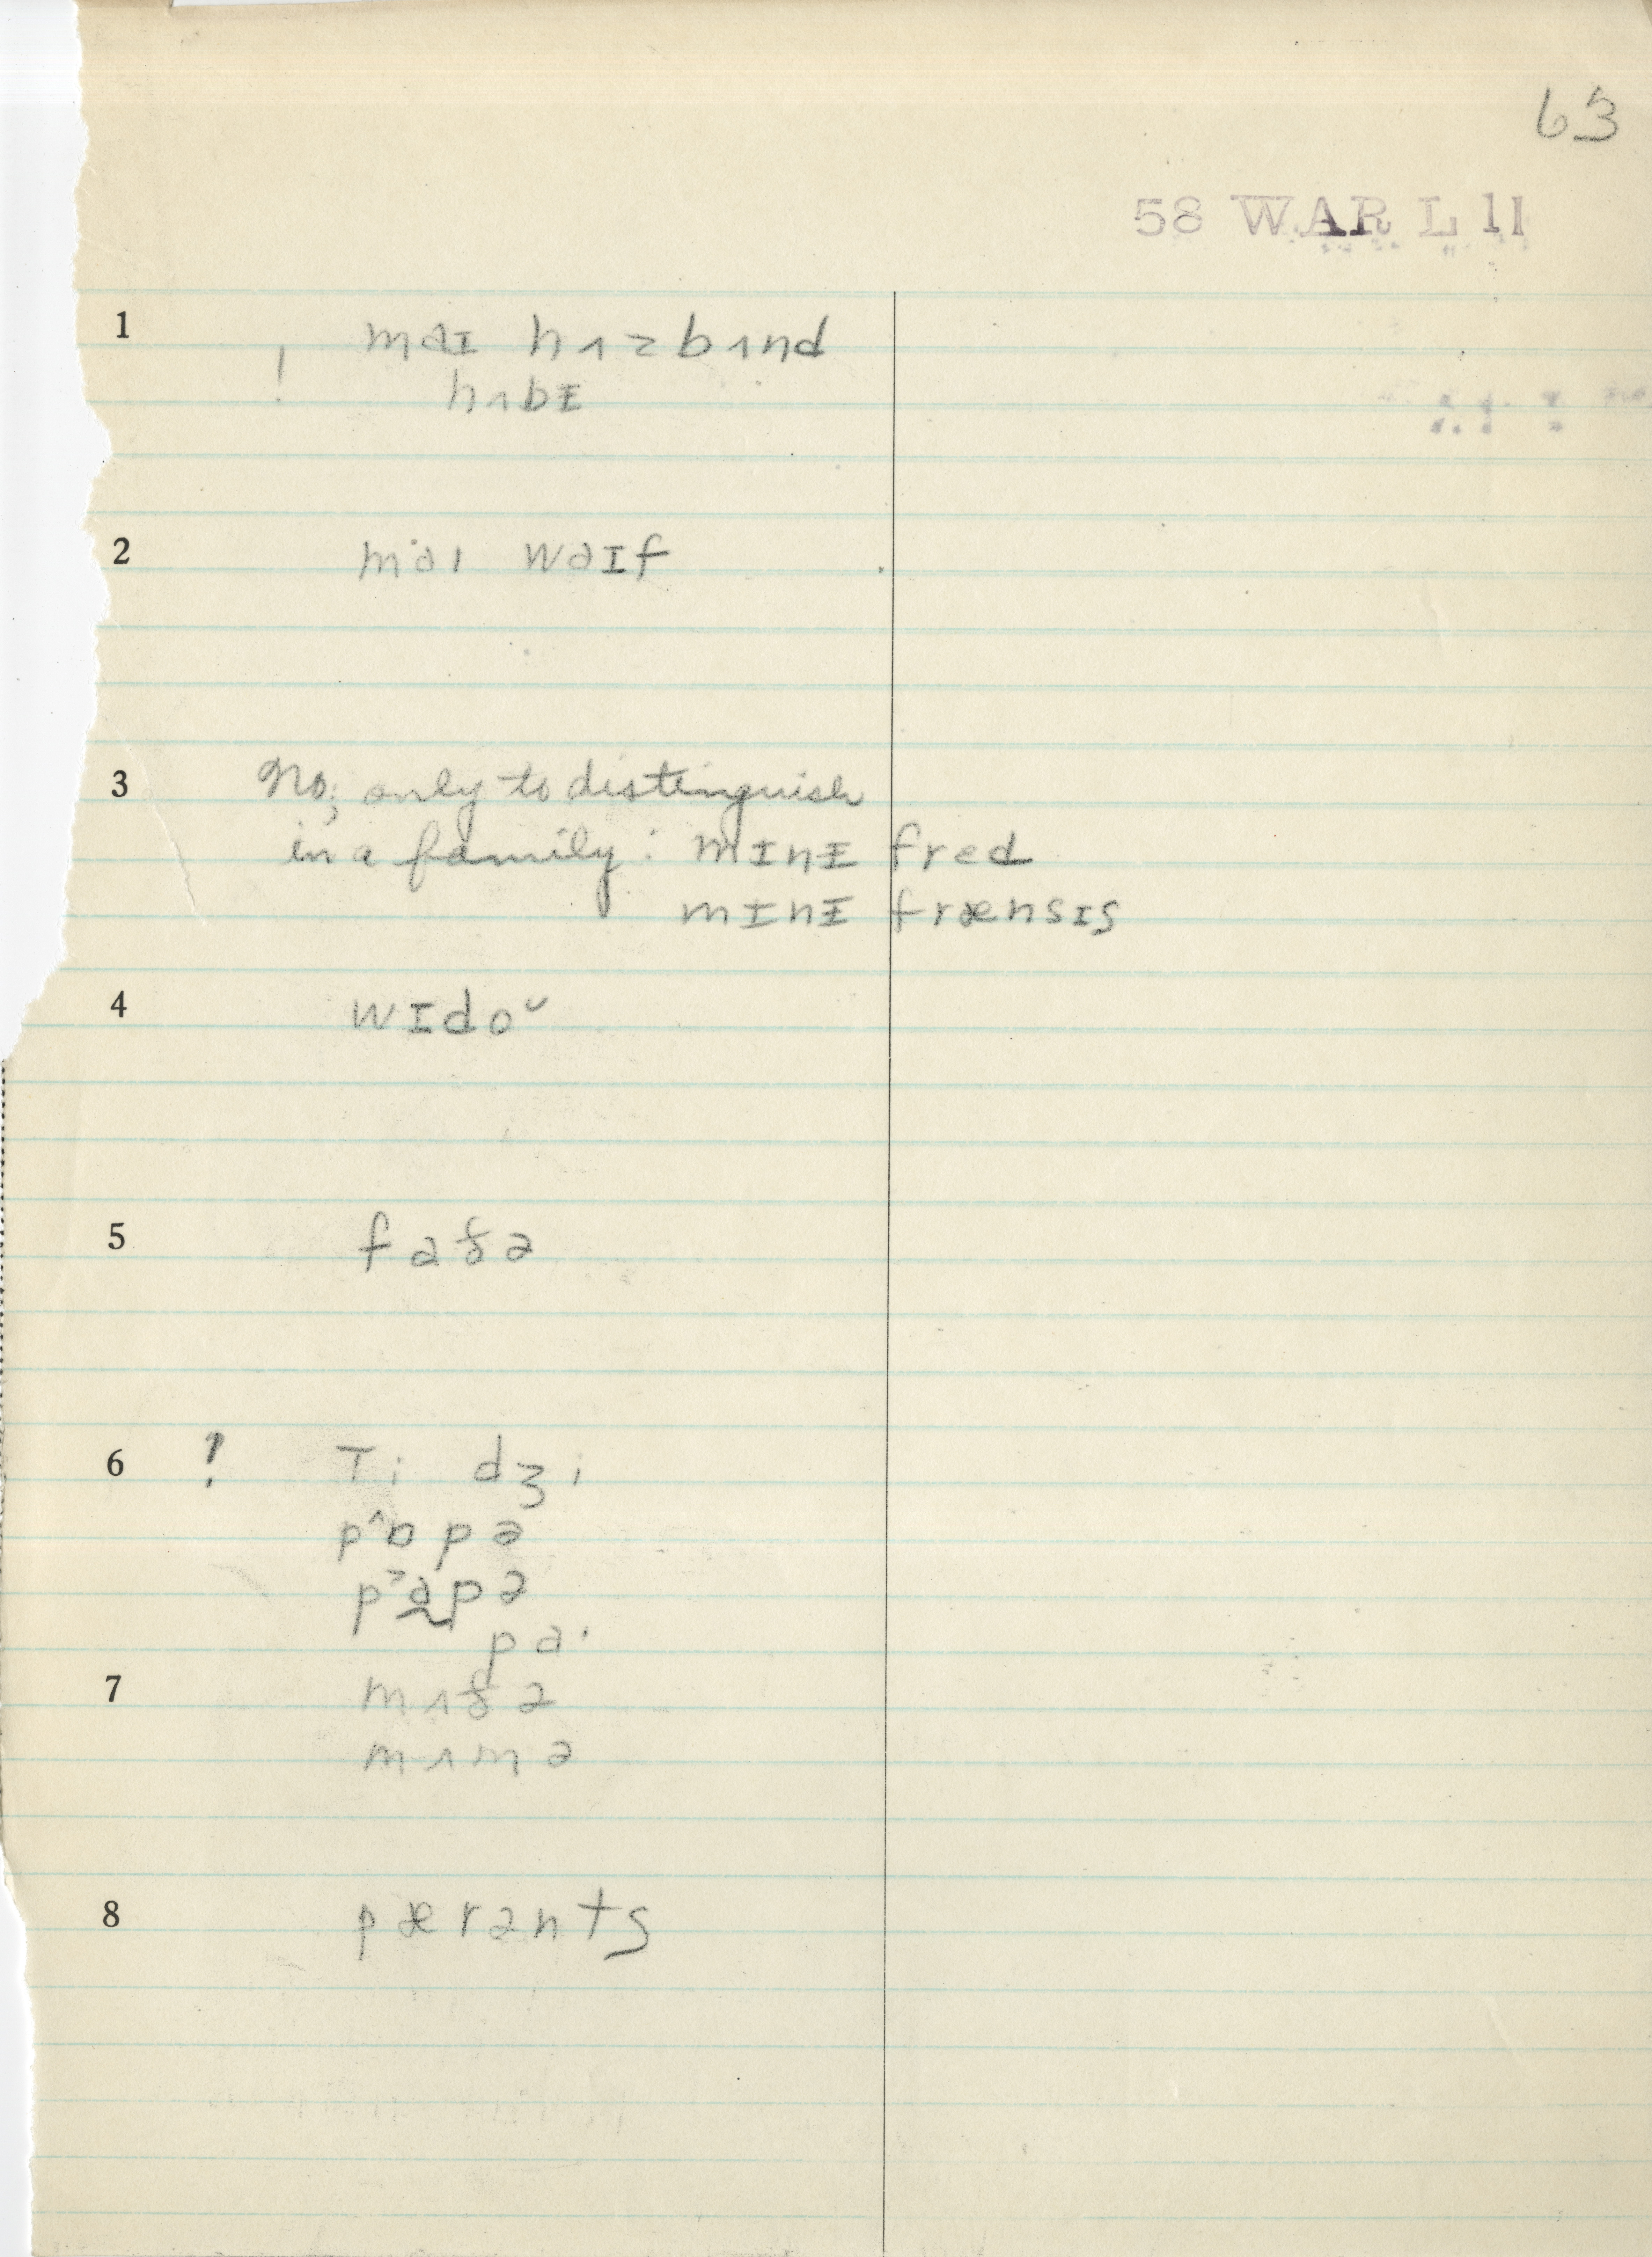 63
58 WAR L 11
1 maɪ hʌzbʌnd
! hʌbɪ
2 maɪ waɪf
3 No; only to distinguish
in a family: mɪnɪ fred
mɪnɪ frænsɪs
4 wɪdoᵕ
5 faðə
6 ! Ti dʒi
pˆɒpə
pa̰pə
pa·
7 mʌðə
mʌmə
8 pærənts